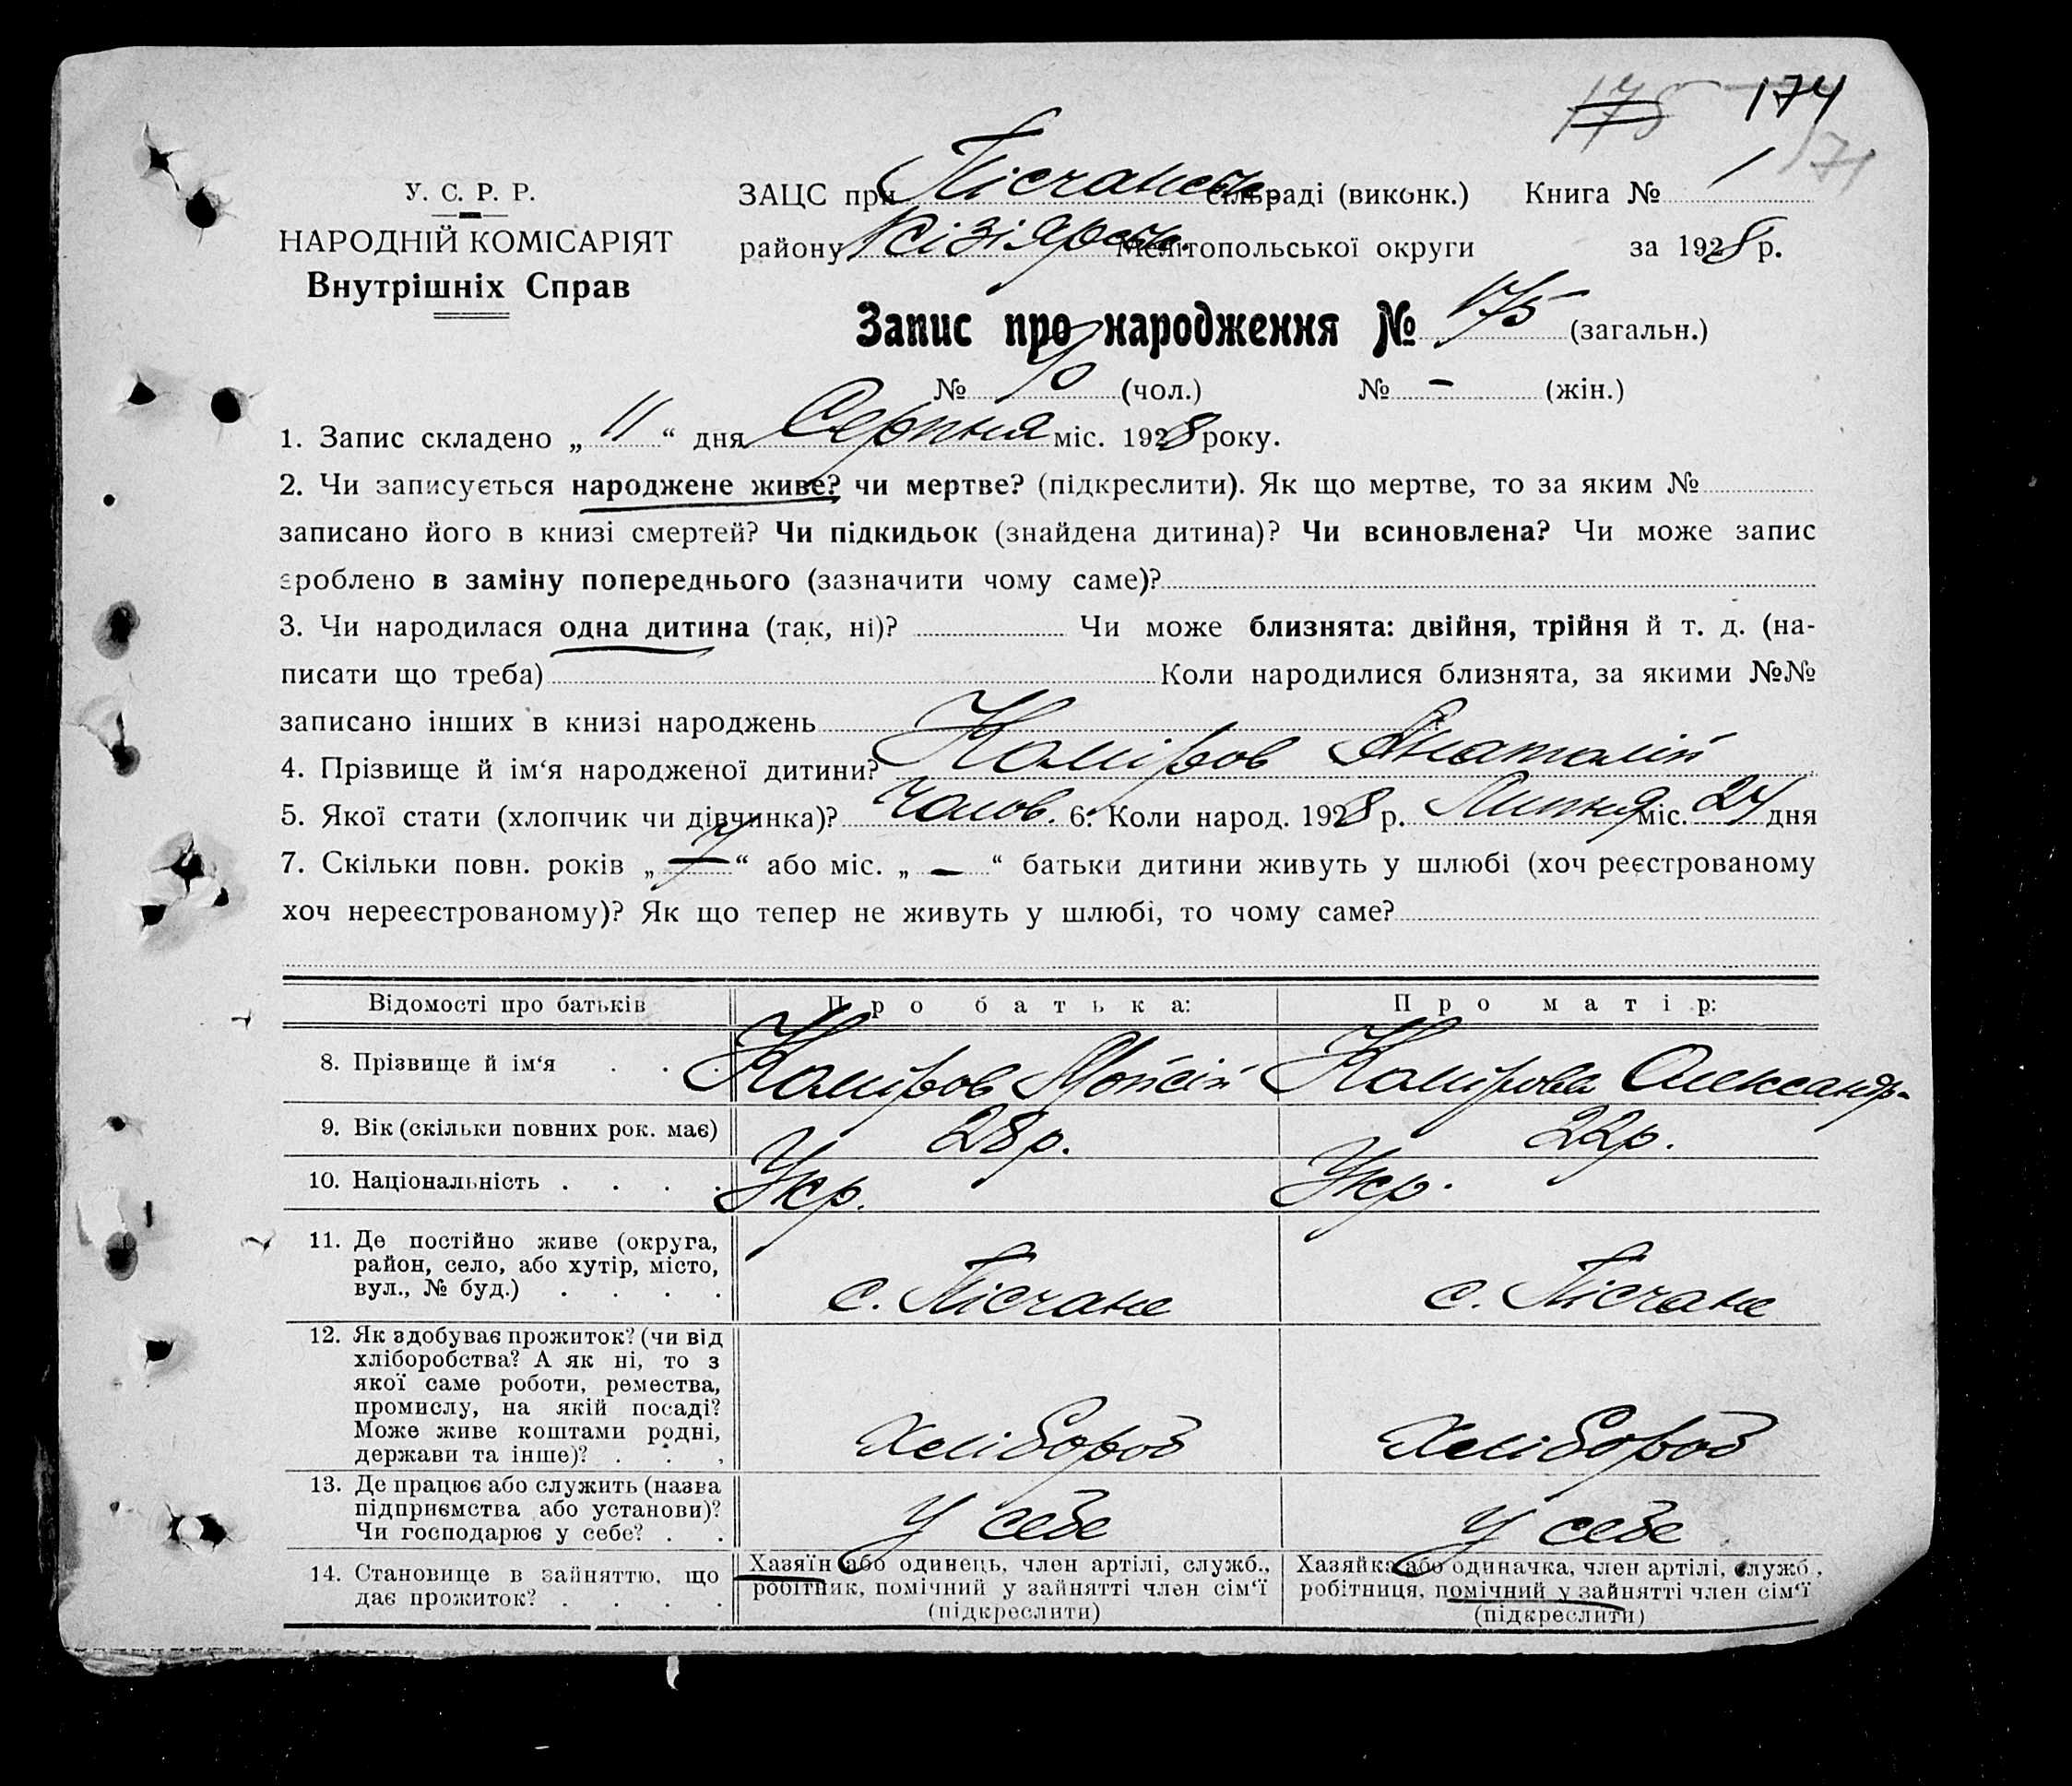 175 174
171
У. С. Р. Р.
НАРОДНІЙ КОМІСАРІЯТ
Внутрішніх Справ
ЗАЦС при Пісчанськ. сільраді (виконк.) Книга № 1
району Кізіярськ. Мелітопольської округи за 1928 р.
Запис про народження № 175 (загальн.)
№ (чол.) № - (жін.)
1. Запис складено „ 11 “ дня Серпня міс. 1928 року.
2. Чи записується народжене живе? чи мертве? (підкреслити). Як що мертве, то за яким №
записано його в книзі смертей? Чи підкидьок (знайдена дитина)? Чи всиновлена? Чи може запис
зроблено в заміну попереднього (зазначити чому саме)?
3. Чи народилася одна дитина (так, ні)? Чи може близнята: двійня, трійня й т. д. (на-
писати що треба) Коли народилися близнята, за якими №№
записано інших в книзі народжень
4. Прізвище й ім‘я народженої дитини? Анатолій
5. Якої стати (хлопчик чи дівчинка)? Чолов. 6. Коли народ. 1928 р. Липня міс. 24 дня
7. Скільки повн. років „ “ або міс. „ - “ батьки дитини живуть у шлюбі (хоч реєстрованому
хоч нереєстрованому)? Як що тепер не живуть у шлюбі, то чому саме?
Відомості про батьків Про батька: Про матір:
8. Прізвище й ім‘я . . . Мойсій Олександр-
9. Вік (скільки повних рок. має) 28 р. 22 р.
10. Національність . . . . Укр. Укр.
11. Де постійно живе (округа,
район, село, або хутір, місто,
вул., № буд.) . . . . с. Пісчане с. Пісчане
12. Як здобуває прожиток? (чи від
хліборобства? А як ні, то з
якої саме роботи, ремества,
промислу, на якій посаді?
Може живе коштами родні,
держави та інше)? . . . Хлібороб Хлібороб
13. Де працює або служить (назва
підприємства або установи)?
Чи господарює у себе? . . У себе У себе
14. Становище в зайняттю, що
дає прожиток? . . . .
Хазяїн або одинець, член артілі, служб.,
робітник, помічний у зайнятті член сім‘ї
(підкреслити)
Хазяйка або одиначка, член артілі, служб.,
робітниця, помічний у зайнятті член сім‘ї
(підкреслити)